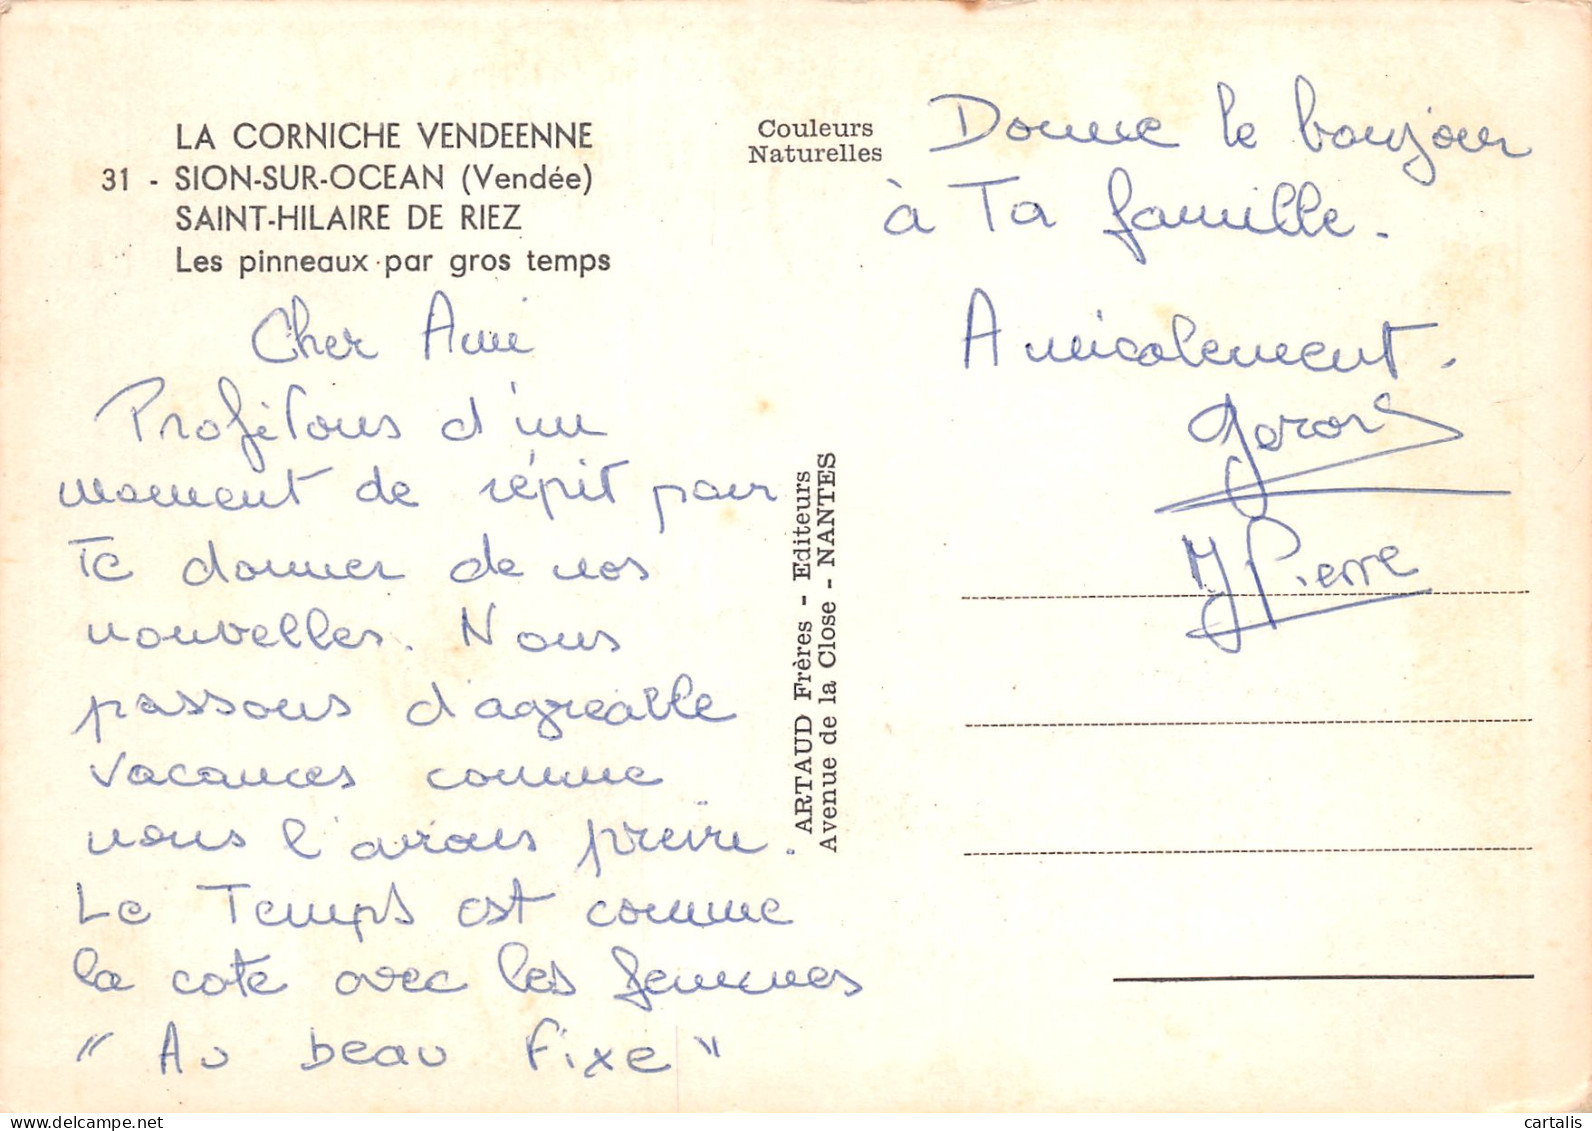 LA CORNICHE VENDEENNE
31 - SION-SUR-OCEAN (Vendée)
SAINT-HILAIRE DE RIEZ
Les pinneaux par gros temps
Cher Ami
Profitons d'un
moment de répit pour
Te donner de nos
nouvelles. Nous
passons d'agreable
vacances comme
nous l'avions prevu.
Le Temps est comme
la cote avec les femmes
" Au beau Fixe "
Couleurs
Naturelles
ARTAUD Frères - Editeurs
Avenue de la Close - NANTES
Donne le bonjour
à Ta famille.
Amicalement.
Gerard
J Pierre
www.delcampe.net
cartalis